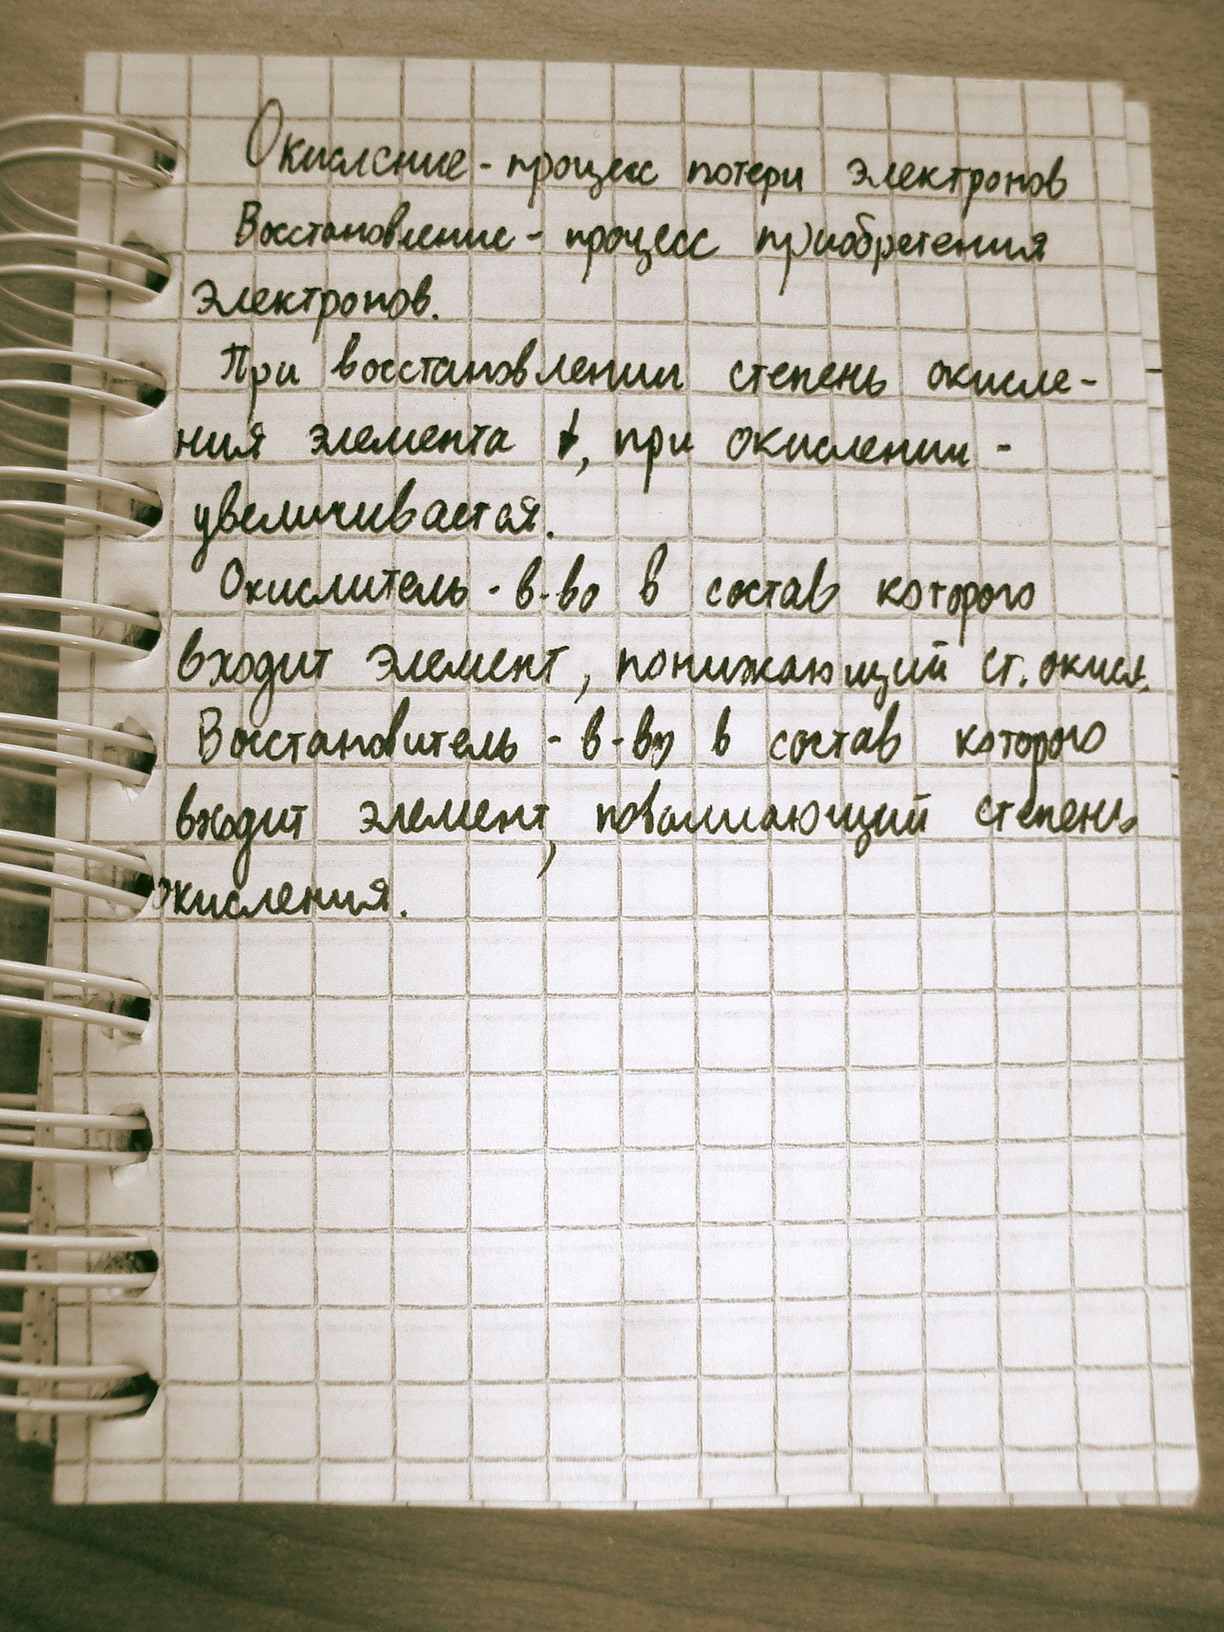 Окисление - процесс потери электронов
Восстановление - процесс приобретения
электронов.
При восстановлении степень окисле-
ния элемента ↓, при окислении -
увеличивается.
Окислитель - в-во в состав которого
входит элемент, понижающий ст. окисл.
Восстановитель - в-во в состав которого
входит элемент, повышающий степень
окисления.